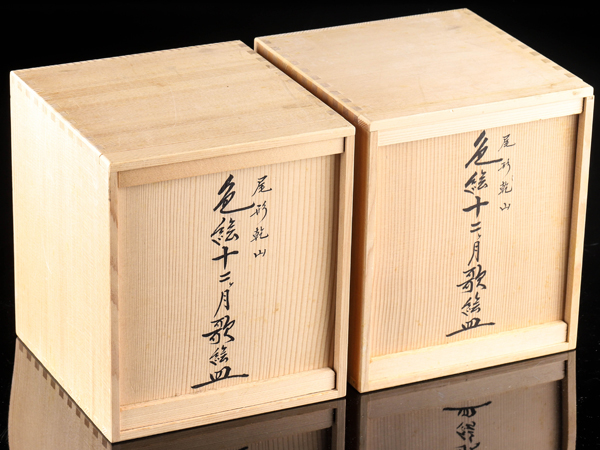 尾形乾山
色絵十二ヶ月歌絵皿
尾形乾山
色絵十二ヶ月歌絵皿